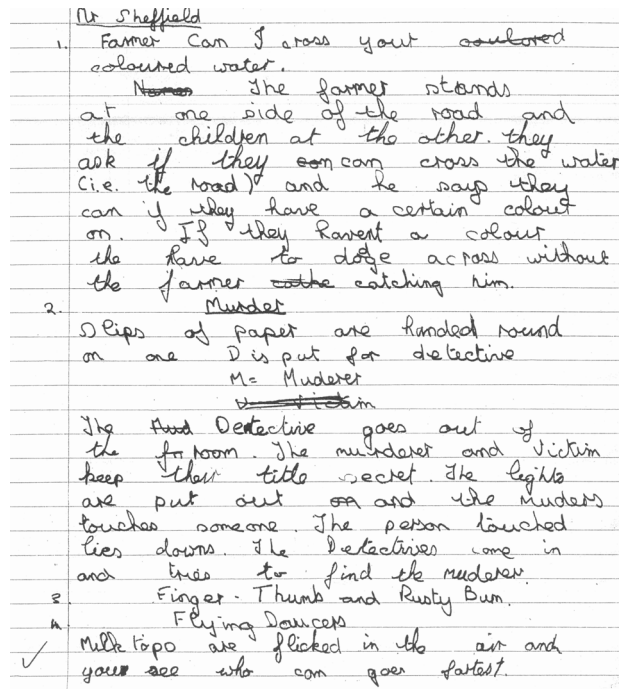 Mr Sheffield
1. Farmer Can I cross your coulored
coloured water.
Names The farmer stands
at one side of the road and
the children at the other. they
ask if they can can cross the water
(i.e. the road) and he says they
can if they have a certain colour
on. If they havent a colour
the have to doge across without
the farmer cathe catching him.
2. Murder
Slips of paper are handed round
on one D is put for detective
M= Muderer
V= Victim
The Mud Detective goes out of
the fr room. The murderer and Victim
keep their title secret. The lights
are put out on and the muders
touches someone. The person touched
lies downs. The Detectives come in
and tries to find the muderer.
3. Finger - Thumb and Rusty Bum.
4. Flying Saucers
Milk topo are flicked in the air and
you see who can goes fartest.